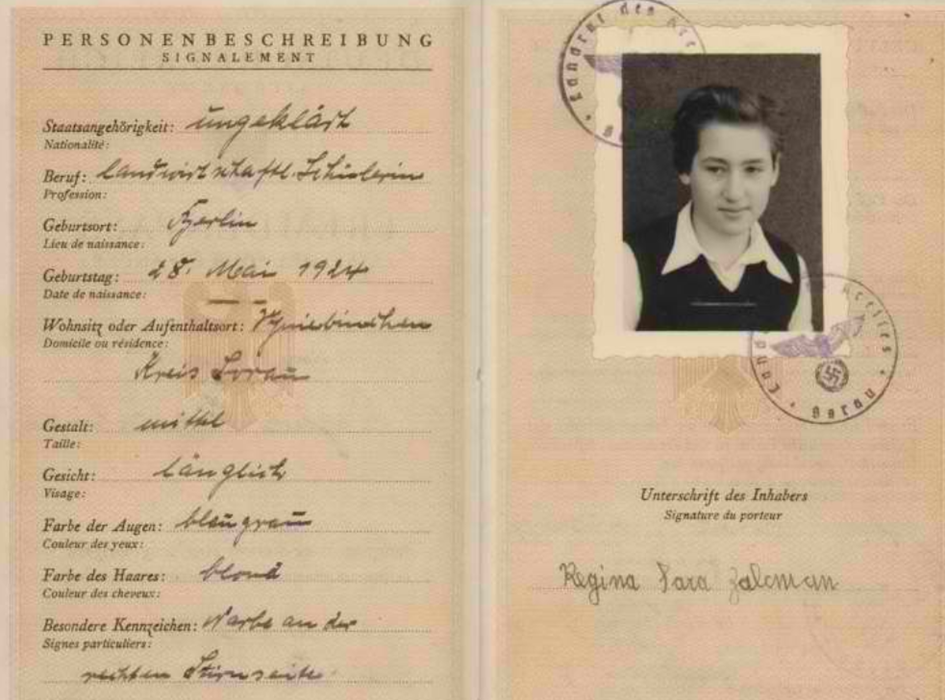 PERSONENBESCHREIBUNG
SIGNALEMENT
Staatsangehörigkeit: ungeklärt
Nationalité:
Beruf: landwirtschaftl. Schülerin
Profession:
Geburtsort: Berlin
Lieu de naissance:
Geburtstag: 28. Mai 1924
Date de naissance:
Wohnsitz oder Aufenthaltsort:
Domicile ou résidence:
Kreis Sorau
Gestalt: mittel
Taille:
Gesicht: länglich
Visage:
Farbe der Augen: blaugrau
Couleur des yeux:
Farbe des Haares: blond
Couleur des cheveux:
Besondere Kennzeichen: Narbe an der
Signes particuliers:
rechten Stirnseite
Landrat des
Kreises
Sorau
Unterschrift des Inhabers
Signature du porteur
Regina Sara Zalcman